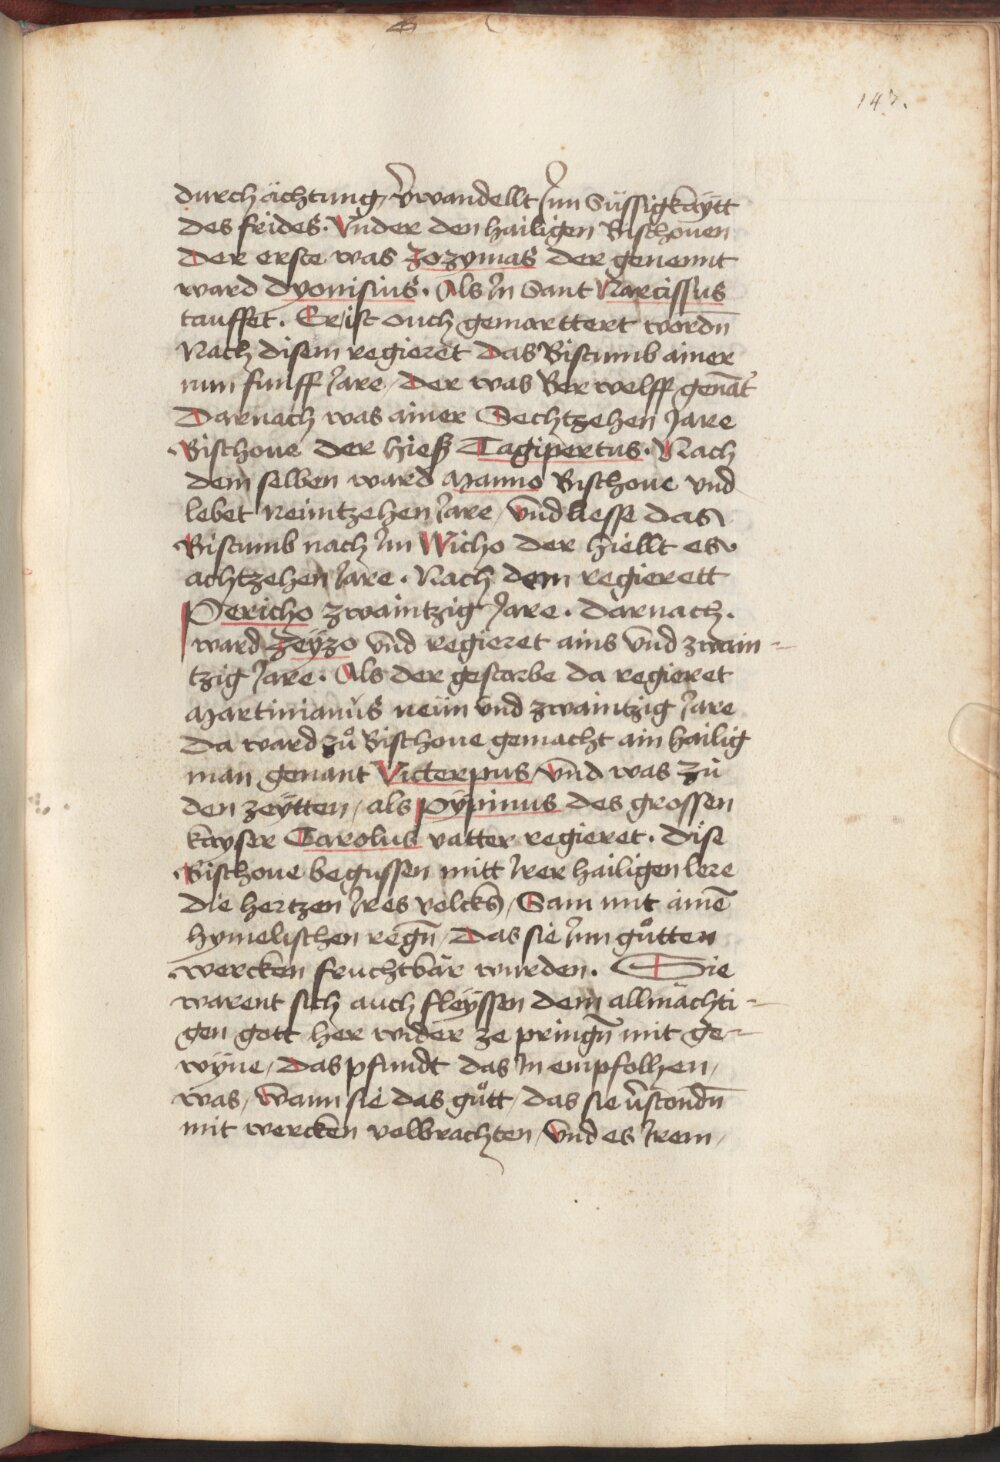 147.
durch ächtung, v̄wandellt Jnn Süssigkaÿtt
des frides. Vnder den hailigen Bischouen
Der erste was Zozymas der genennt
ward dyonisius. Als Jn Sant Narcissus
tauffet. Er ist ouch gemarttert wordn̄
Nach disem regieret das Bistumb ainer
nun funff Jare, Der was Berwelff genāt
Darnach was ainer Sechtzehen Jare
Bischoue der hieß Tagipertus. Nach
dem selben ward Manno Bischoue vnd
lebet neüntzehen Jare, vnd liesse das
Bistumb nach Jm Wicho der hiellt es
achtzehen Jare. Nach dem regierett
Pericho zwaintzig Jare. darnach.
ward Zeÿzo vnd regieret ains vnd zwain-
tzig Jare. Als der gestarbe da regieret
Martinianus neün vnd zwaintzig Jare
Da ward zů Bischoue gemacht ain hailig
man genant Victerpus, vnd was zů
den zeÿtten, als pÿpinus des grossen
kayser Carolus vatter regieret. dise
Bischoue begussen mitt Jrer hailigen lere
die hertzen Jres volcks, Sam mit ainē
hymelischen regn̄, Das sie Jnn gůtten
wercken fruchtbär wurden. Sie
warent sich auch fleÿssen dem allmächti-
gen gott her wider ze pringn̄ mit ge-
wÿne, das pfundt das Jn empfolhen,
was, wann sie das gůtt, das sie v̄stondn̄
mit wercken volbrachten, vnd es Jrem,